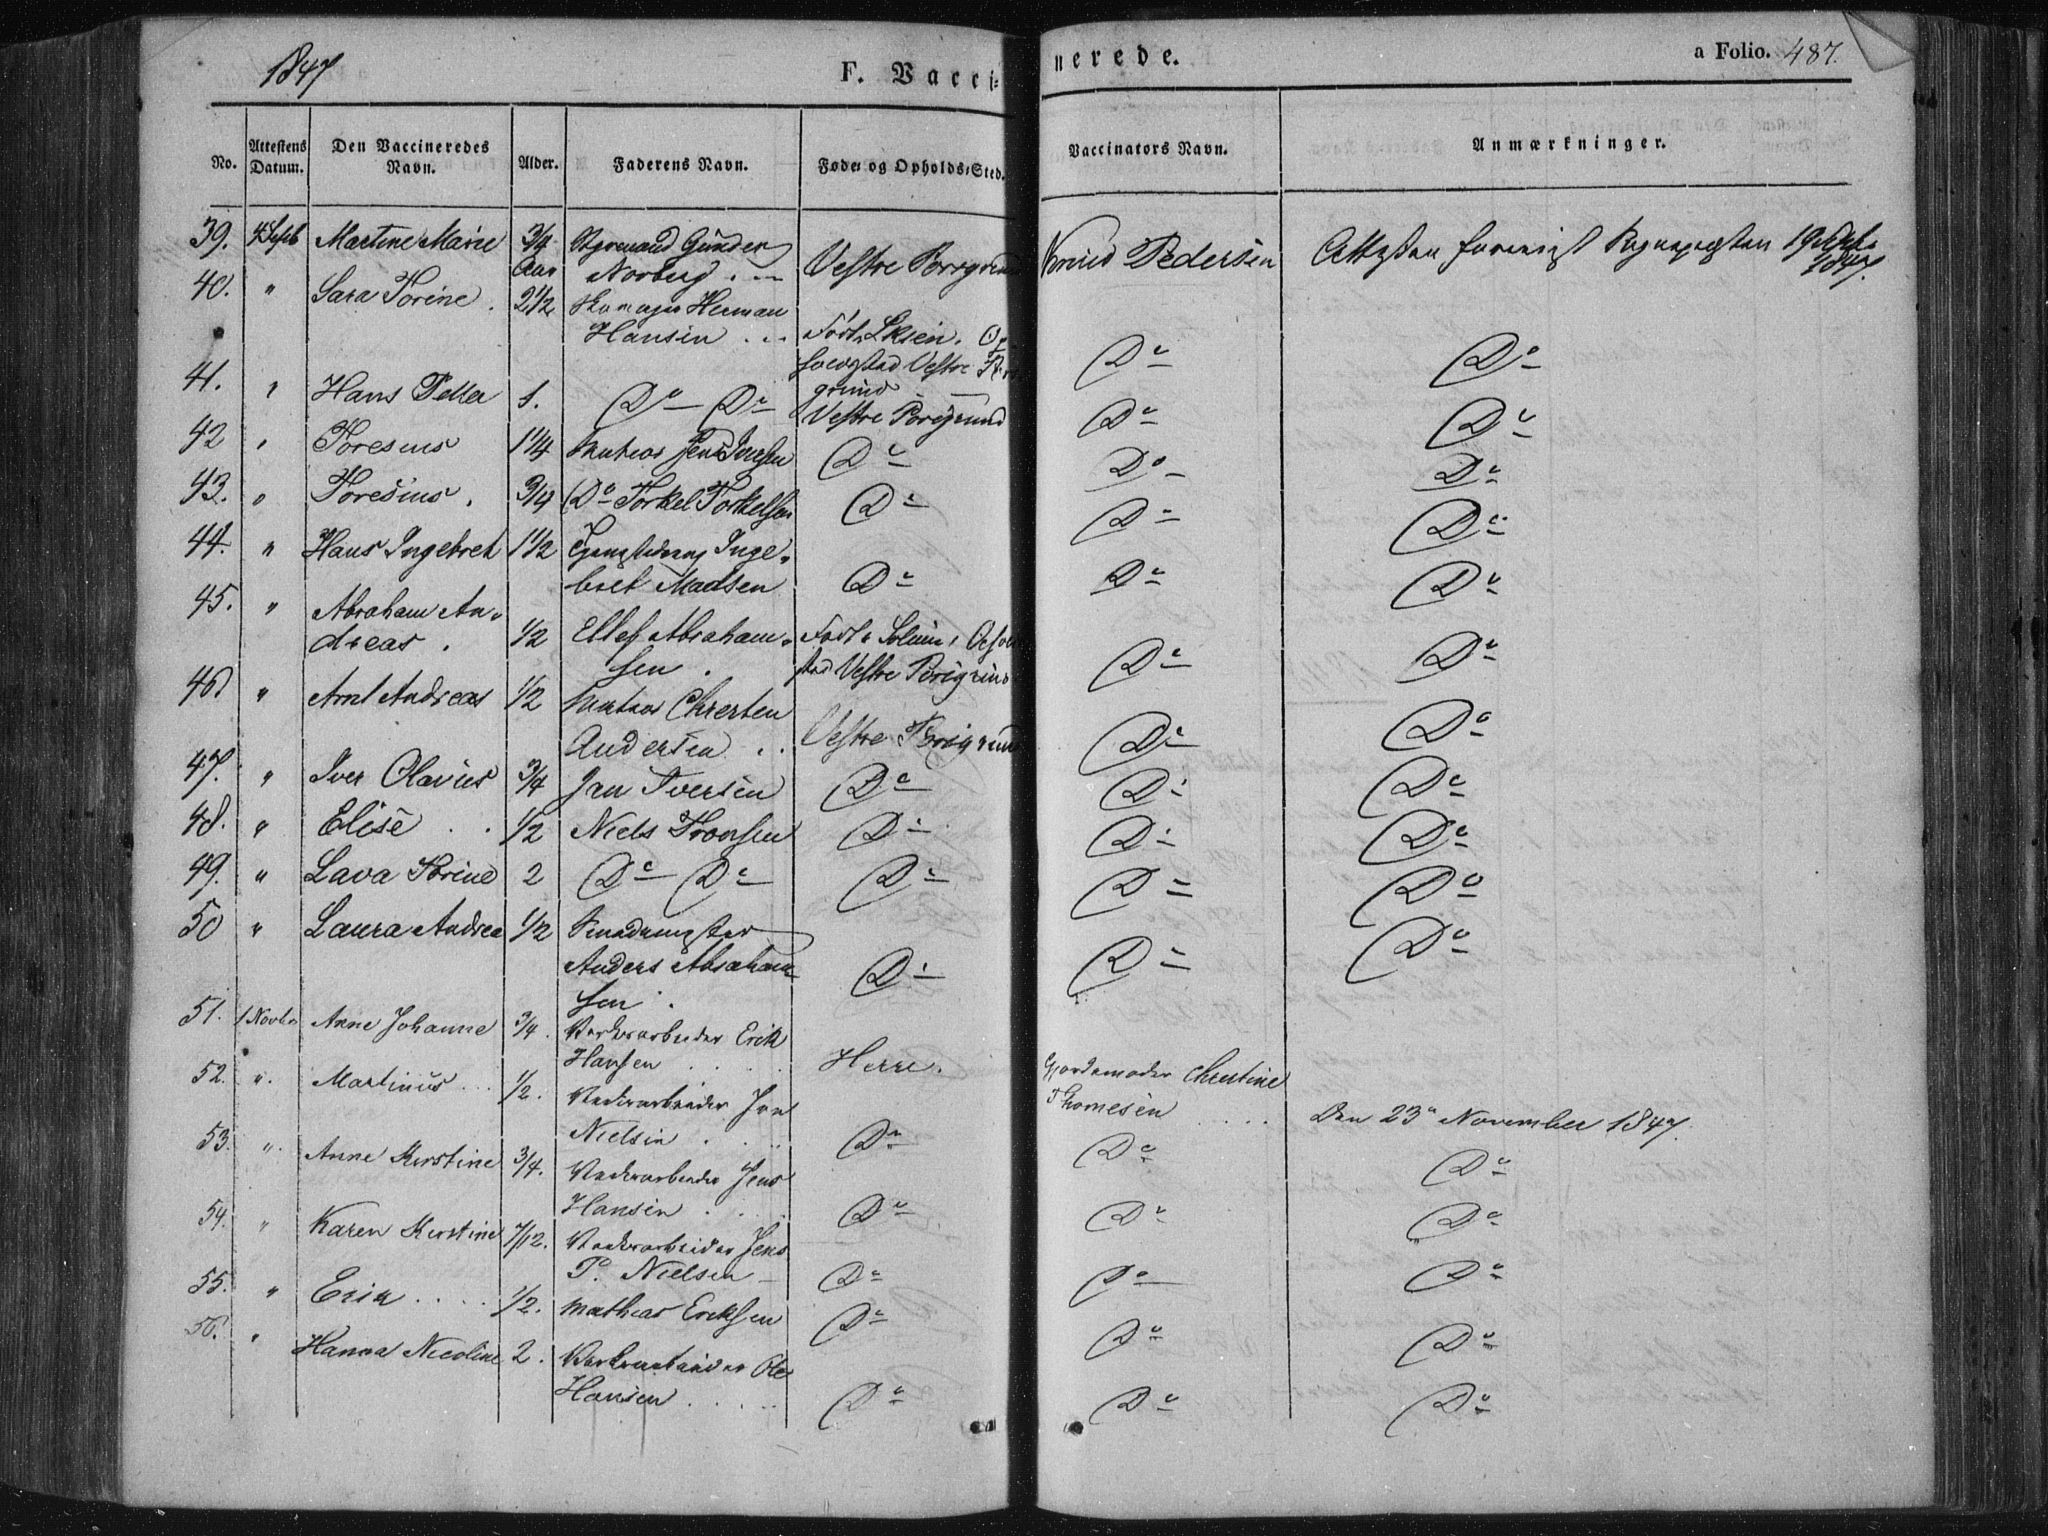 1847
F. Vacci-
nerede.
a Folio. 487.
No.
Attestens Datum.
Den Vaccineredes Navn.
Alder.
Faderens Navn.
Føde- og Opholds-Sted.
Vaccinators Navn.
Anmærkninger.
39. 4 Septb Martine Marie 3/4 Aar Gunder Norberg Vestre Porsgrund Knud Pedersen
1847.
40. " Sara Torine 2 1/2 Skomager Herman
Hansen Født Skien.
Vestre Pors
grund Do Do
41. " Hans Petter 1. Do Do Vestre Porsgrund Do Do
42 " Toresius 1 1/4 Matros Jens Iversen Do Do Do
43. " Toresius 3/4 Do Torkel Torkelsen Do Do Do
44. " Hans Ingebret 1 1/2 Inge-
bret Madsen Do Do Do
45. " Abraham An-
dreas 1/2 Ellef Abraham-
sen Født Solum, Ophold-
sted Vestre Porsgrund Do Do
46. " Arnt Andreas 1/2 Matros Christen
Andersen Vestre Porsgrund Do Do
47. " Iver Olavius 3/4 Jan Iversen Do Do Do
48. " Elise 1/2 Niels Tronsen Do Do Do
49. " Lava Torine 2 Do Do Do Do Do
50 " Laura Andrea 1/2
Anders Abraham-
sen Do Do Do
51. 1 Novbr Anne Johanne 3/4. Værksarbeider Erik
Hansen Herre. Gjordemoder Christine
Thomesen Den 23de November 1847.
52. " Martinus 1/2. Værksarbeider Jan
Nielsen Do Do Do
53. " Anne Kirstine 3/4. Værksarbeider Jens
Hansen Do Do Do
54. " Karen Kirstine 7/12. Værksarbeider Jens
P. Nielsen Do Do Do
55. " Erik 1/2. Mathias Eriksen Do Do Do
56. " Hanna Nicoline 2. Værksarbeider Ole
Hansen Do Do Do